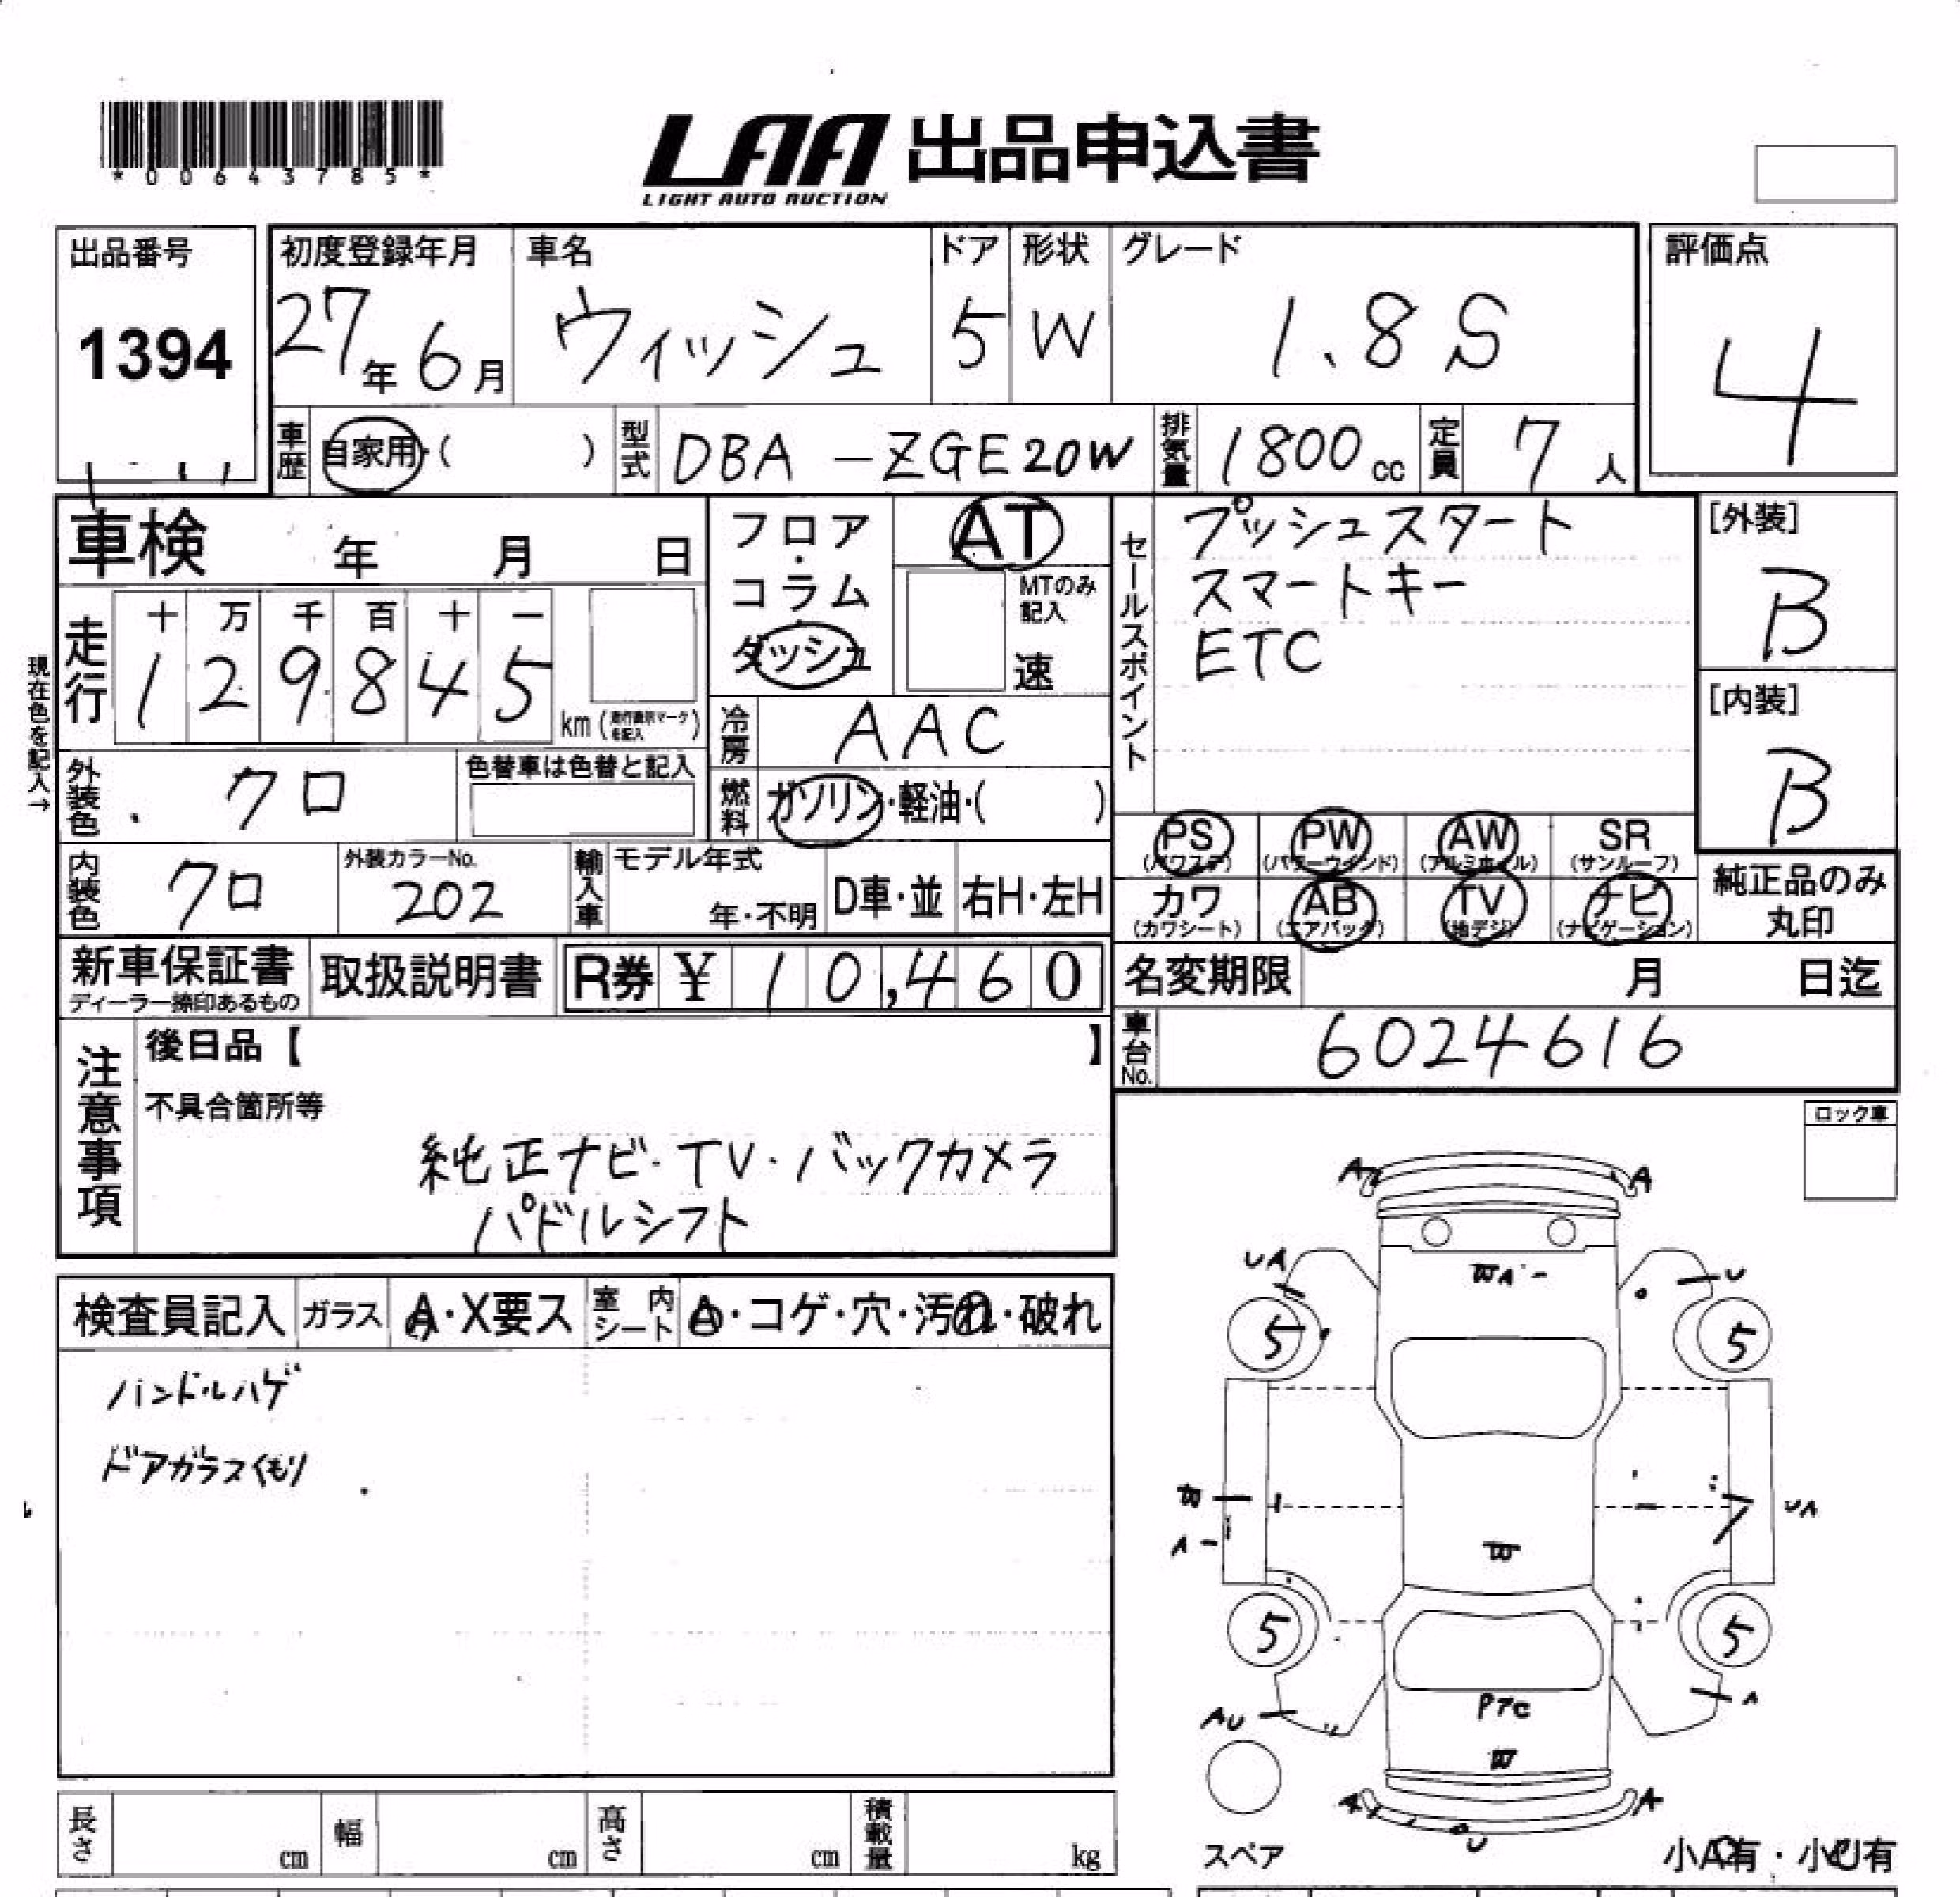 *00643785*
LAA 出品申込書
LIGHT AUTO AUCTION
出品番号
1394
初度登録年月
27年6月
車名
ウィッシュ
ドア
5
形状
W
グレード
1.8S
評価点
4
車歴 自家用・( )
型式 DBA-ZGE20W
排気量 1800cc
定員 7人
車検 年 月 日
現在色を記入→
走行
十 万 千 百 十 一
1 2 9 8 4 5
km (走行表示マークを記入)
フロア・コラム・ダッシュ
AT
MTのみ記入
速
冷房 AAC
燃料 ガソリン・軽油・( )
セールスポイント
プッシュスタート
スマートキー
ETC
[外装]
B
[内装]
B
外装色 クロ
色替車は色替と記入
内装色 クロ
外装カラーNo.
202
輸入車
モデル年式
年・不明
D車・並
右H・左H
PS (パワステ)
PW (パワーウインド)
AW (アルミホイル)
SR (サンルーフ)
カワ (カワシート)
AB (エアバック)
TV (地デジ)
ナビ (ナビゲーション)
純正品のみ
丸印
新車保証書
ディーラー捺印あるもの
取扱説明書
R券 ¥ 10,460
名変期限 月 日迄
車台No. 6024616
注意事項
後日品【 】
不具合箇所等
純正ナビ・TV・バックカメラ
パドルシフト
ロック車
検査員記入
ガラス A・X要ス
室内シート
・コゲ・穴・汚れ・破れ
ハンドルハゲ
ドアガラスくもり
A A
UA WA U
5 5
W UA
A W
5 5
PTC A
AU W
A A
U
スペア
小A有・小U有
長さ cm
幅 cm
高さ cm
積載量 kg